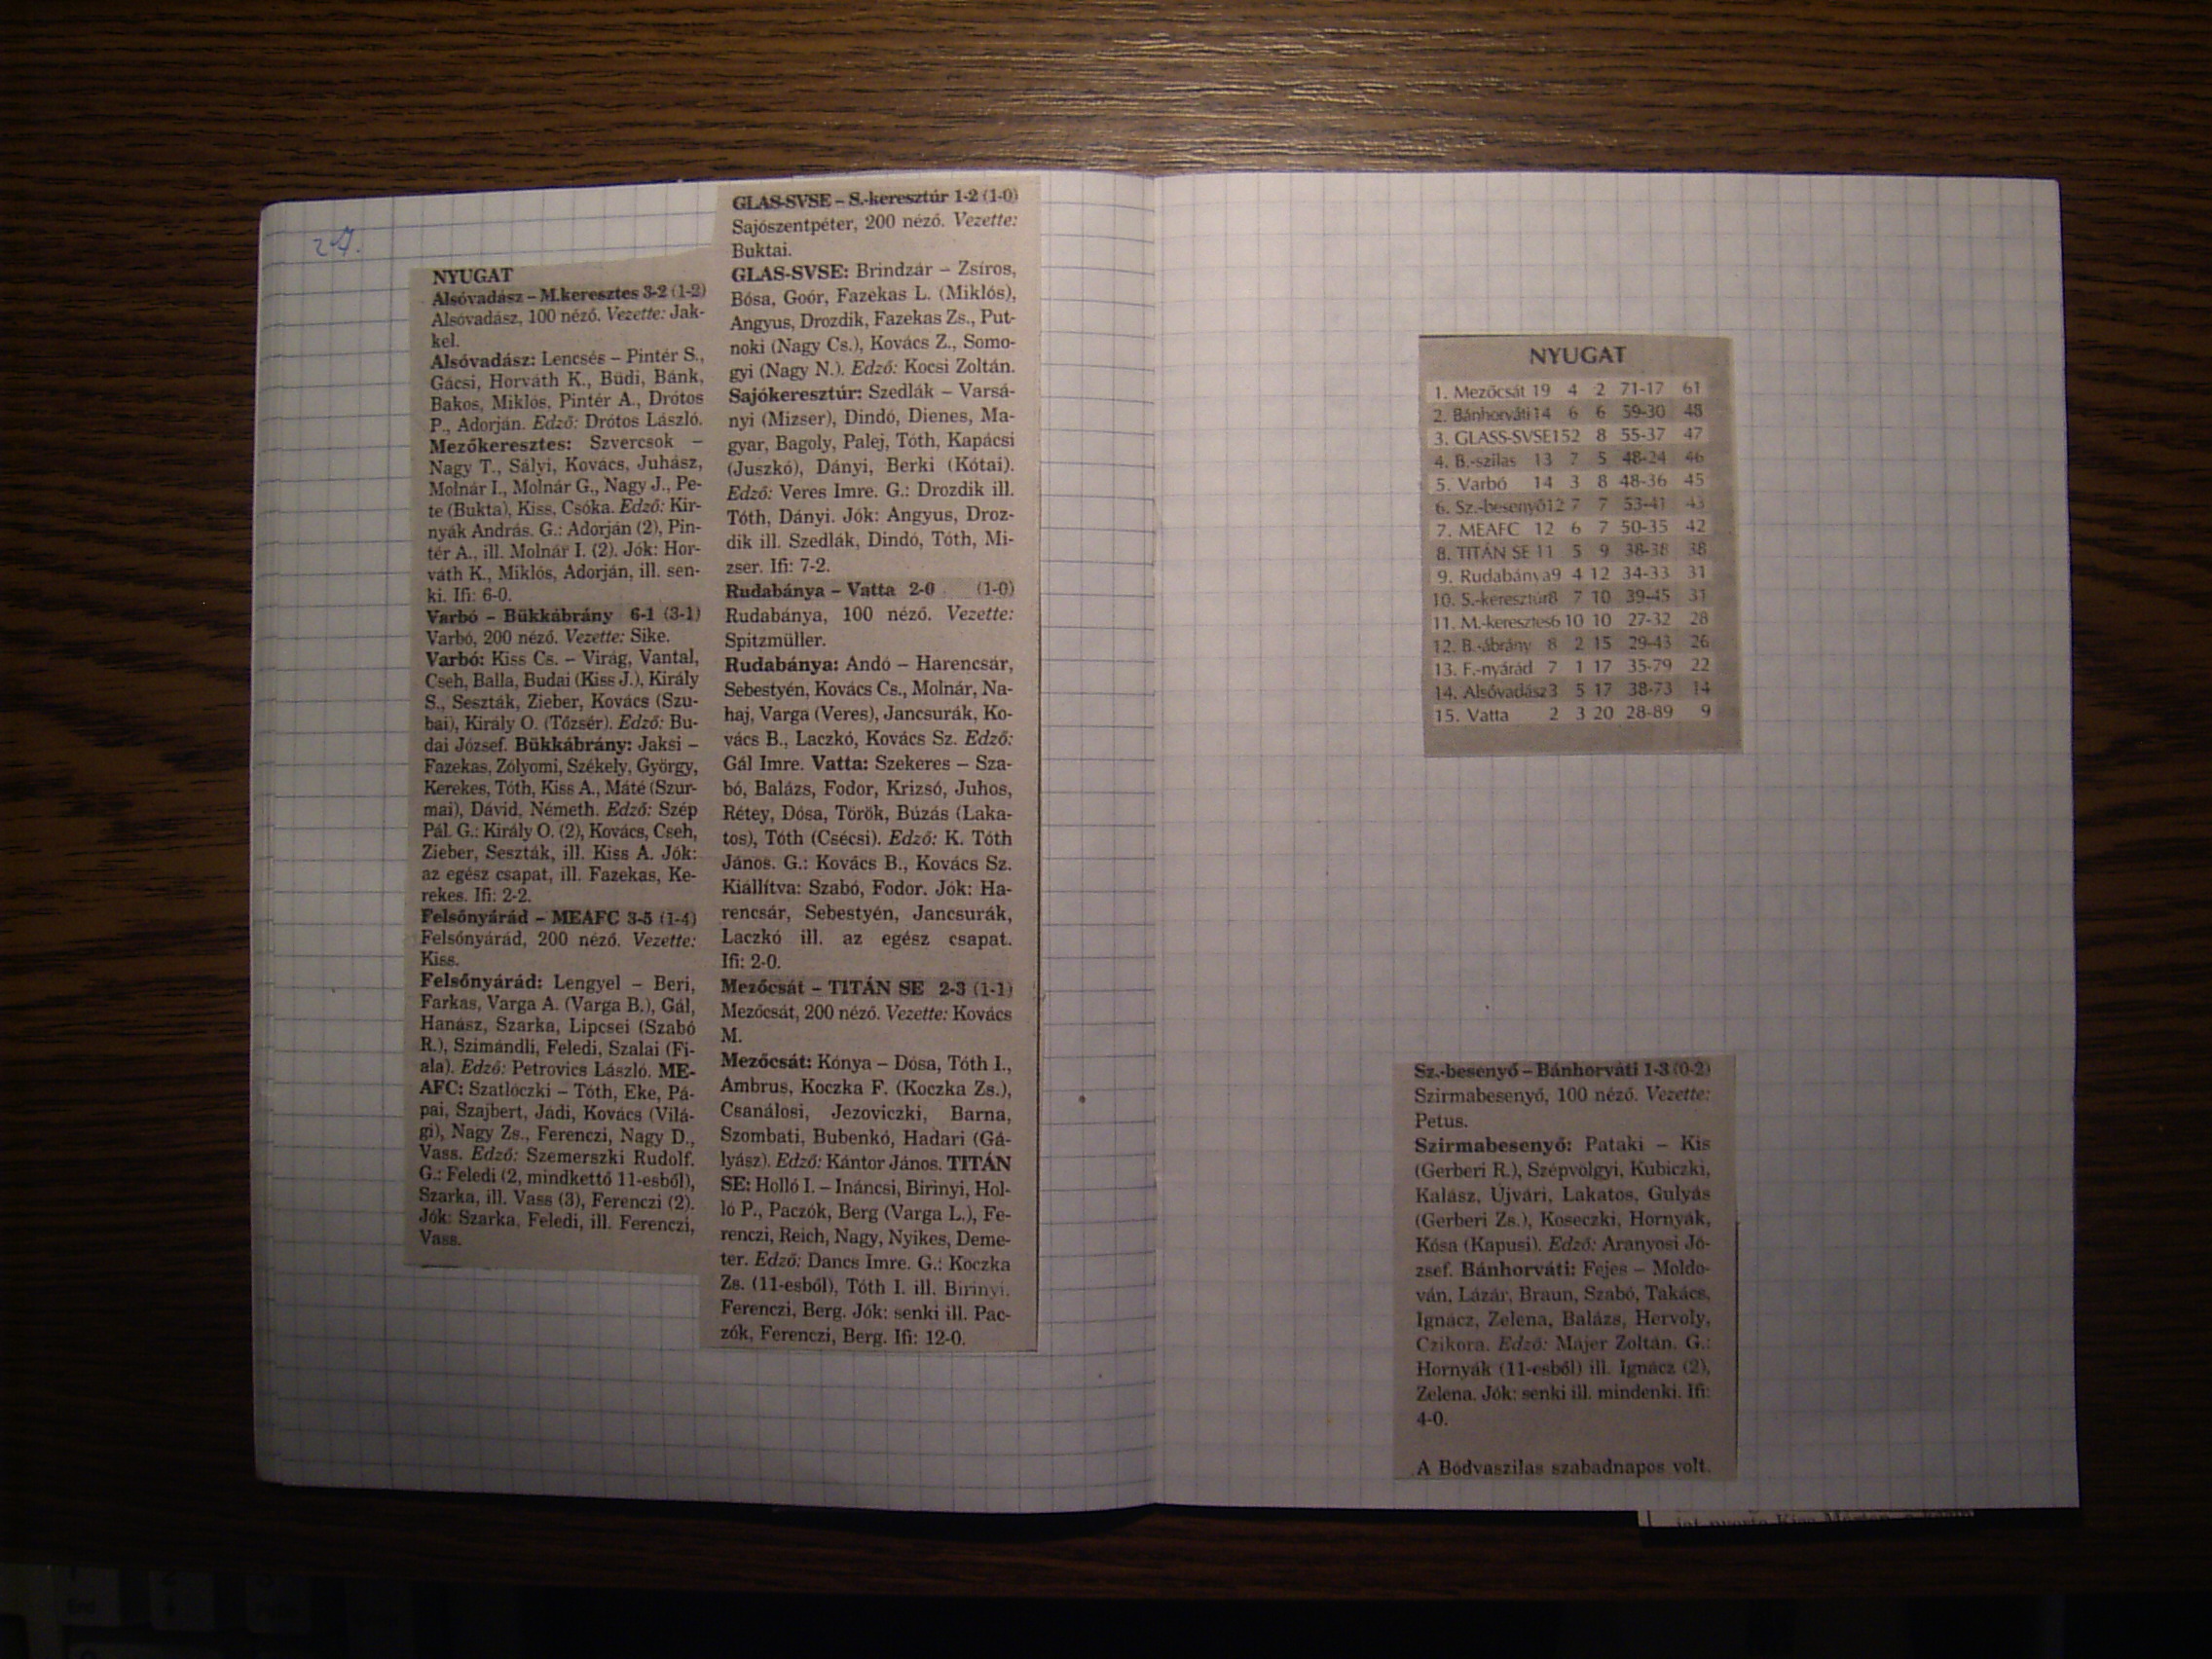 27.
NYUGAT
Alsóvadász – M.keresztes 3-2 (1-2)
Alsóvadász, 100 néző. Vezette: Jak-
kel.
Alsóvadász: Lencsés – Pintér S.,
Gácsi, Horváth K., Büdi, Bánk,
Bakos, Miklós, Pintér A., Drótos
P., Adorján. Edző: Drótos László.
Mezőkeresztes: Szvercsok –
Nagy T., Sályi, Kovács, Juhász,
Molnár I., Molnár G., Nagy J., Pe-
te (Bukta), Kiss, Csóka. Edző: Kir-
nyák András. G.: Adorján (2), Pin-
tér A., ill. Molnár I. (2). Jók: Hor-
váth K., Miklós, Adorján, ill. sen-
ki. Ifi: 6-0.
Varbó – Bükkábrány 6-1 (3-1)
Varbó, 200 néző. Vezette: Sike.
Varbó: Kiss Cs. – Virág, Vantal,
Cseh, Balla, Budai (Kiss J.), Király
S., Seszták, Zieber, Kovács (Szu-
bai), Király O. (Tőzsér). Edző: Bu-
dai József. Bükkábrány: Jaksi –
Fazekas, Zólyomi, Székely, György,
Kerekes, Tóth, Kiss A., Máté (Szur-
mai), Dávid, Németh. Edző: Szép
Pál. G.: Király O. (2), Kovács, Cseh,
Zieber, Seszták, ill. Kiss A. Jók:
az egész csapat, ill. Fazekas, Ke-
rekes. Ifi: 2-2.
Felsőnyárád – MEAFC 3-5 (1-4)
Felsőnyárád, 200 néző. Vezette:
Kiss.
Felsőnyárád: Lengyel – Beri,
Farkas, Varga A. (Varga B.), Gál,
Hanász, Szarka, Lipcsei (Szabó
R.), Szimándli, Feledi, Szalai (Fi-
ala). Edző: Petrovics László. ME-
AFC: Szatlóczki – Tóth, Eke, Pá-
pai, Szajbert, Jádi, Kovács (Vilá-
gi), Nagy Zs., Ferenczi, Nagy D.,
Vass. Edző: Szemerszki Rudolf.
G.: Feledi (2, mindkettő 11-esből),
Szarka, ill. Vass (3), Ferenczi (2).
Jók: Szarka, Feledi, ill. Ferenczi,
Vass.
GLAS-SVSE – S.-keresztúr 1-2 (1-0)
Sajószentpéter, 200 néző. Vezette:
Buktai.
GLAS-SVSE: Brindzár – Zsíros,
Bósa, Goór, Fazekas L. (Miklós),
Angyus, Drozdik, Fazekas Zs., Put-
noki (Nagy Cs.), Kovács Z., Somo-
gyi (Nagy N.). Edző: Kocsi Zoltán.
Sajókeresztúr: Szedlák – Varsá-
nyi (Mizser), Dindó, Dienes, Ma-
gyar, Bagoly, Palej, Tóth, Kapácsi
(Juszkó), Dányi, Berki (Kótai).
Edző: Veres Imre. G.: Drozdik ill.
Tóth, Dányi. Jók: Angyus, Droz-
dik ill. Szedlák, Dindó, Tóth, Mi-
zser. Ifi: 7-2.
Rudabánya – Vatta 2-0 (1-0)
Rudabánya, 100 néző. Vezette:
Spitzmüller.
Rudabánya: Andó – Harencsár,
Sebestyén, Kovács Cs., Molnár, Na-
haj, Varga (Veres), Jancsurák, Ko-
vács B., Laczkó, Kovács Sz. Edző:
Gál Imre. Vatta: Szekeres – Sza-
bó, Balázs, Fodor, Krizsó, Juhos,
Rétey, Dósa, Török, Búzás (Laka-
tos), Tóth (Csécsi). Edző: K. Tóth
János. G.: Kovács B., Kovács Sz.
Kiállítva: Szabó, Fodor. Jók: Ha-
rencsár, Sebestyén, Jancsurák,
Laczkó ill. az egész csapat.
Ifi: 2-0.
Mezőcsát – TITÁN SE 2-3 (1-1)
Mezőcsát, 200 néző. Vezette: Kovács
M.
Mezőcsát: Kónya – Dósa, Tóth I.,
Ambrus, Koczka F. (Koczka Zs.),
Csanálosi, Jezoviczki, Barna,
Szombati, Bubenkó, Hadari (Gá-
lyász). Edző: Kántor János. TITÁN
SE: Holló I. – Ináncsi, Birinyi, Hol-
ló P., Paczók, Berg (Varga L.), Fe-
renczi, Reich, Nagy, Nyikes, Deme-
ter. Edző: Dancs Imre. G.: Koczka
Zs. (11-esből), Tóth I. ill. Birinyi,
Ferenczi, Berg. Jók: senki ill. Pac-
zók, Ferenczi, Berg. Ifi: 12-0.
NYUGAT
1. Mezőcsát 19 4 2 71-17 61
2. Bánhorváti 14 6 6 59-30 48
3. GLASS-SVSE 15 2 8 55-37 47
4. B.-szilas 13 7 5 48-24 46
5. Varbó 14 3 8 48-36 45
6. Sz.-besenyő 12 7 7 53-41 43
7. MEAFC 12 6 7 50-35 42
8. TITÁN SE 11 5 9 38-38 38
9. Rudabánya 9 4 12 34-33 31
10. S.-keresztúr 8 7 10 39-45 31
11. M.-keresztes 6 10 10 27-32 28
12. B.-ábrány 8 2 15 29-43 26
13. F.-nyárád 7 1 17 35-79 22
14. Alsóvadász 3 5 17 38-73 14
15. Vatta 2 3 20 28-89 9
Sz.-besenyő – Bánhorváti 1-3 (0-2)
Szirmabesenyő, 100 néző. Vezette:
Petus.
Szirmabesenyő: Pataki – Kis
(Gerberi R.), Szépvölgyi, Kubiczki,
Kalász, Újvári, Lakatos, Gulyás
(Gerberi Zs.), Koseczki, Hornyák,
Kósa (Kapusi). Edző: Aranyosi Jó-
zsef. Bánhorváti: Fejes – Moldo-
ván, Lázár, Braun, Szabó, Takács,
Ignácz, Zelena, Balázs, Hervoly,
Czikora. Edző: Májer Zoltán. G.:
Hornyák (11-esből) ill. Ignácz (2),
Zelena. Jók: senki ill. mindenki. Ifi:
4-0.
A Bódvaszilas szabadnapos volt.